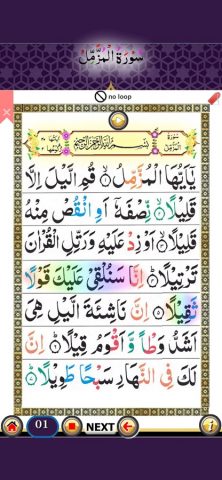 سُوْرَةُ الْمُزَّمِّلْ
no loop
سُوْرَةُ الْمُزَّمِّلْ
بِسْمِ اللّٰهِ الرَّحْمٰنِ الرَّحِيْمِ
يٰۤاَيُّهَا الْمُزَّمِّلُ ۙ۝ قُمِ الَّيْلَ اِلَّا
قَلِيْلًا ۙ۝ نِّصْفَهٗۤ اَوِ انْقُصْ مِنْهُ
قَلِيْلًا ۙ۝ اَوْ زِدْ عَلَيْهِ وَرَتِّلِ الْقُرْاٰنَ
تَرْتِيْلًا ؕ۝ اِنَّا سَنُلْقِيْ عَلَيْكَ قَوْلًا
ثَقِيْلًا ۝ اِنَّ نَاشِئَةَ الَّيْلِ هِيَ
اَشَدُّ وَطْاً وَّاَقْوَمُ قِيْلًا ؕ۝ اِنَّ
لَكَ فِي النَّهَارِ سَبْحًا طَوِيْلًا ؕ۝
01 NEXT i